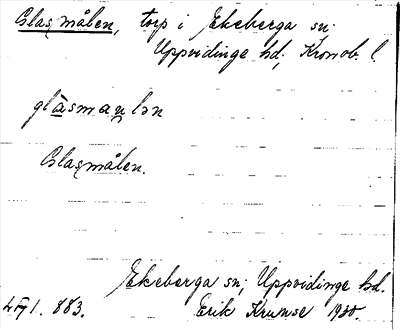 Glasmålen, torp i Ekeberga sn.
Uppvidinge hd, Kronob. l.
glasmauln
Glasmålen.
Ekeberga sn, Uppvidinge hd.
1. 883. Erik Krumse 1930.